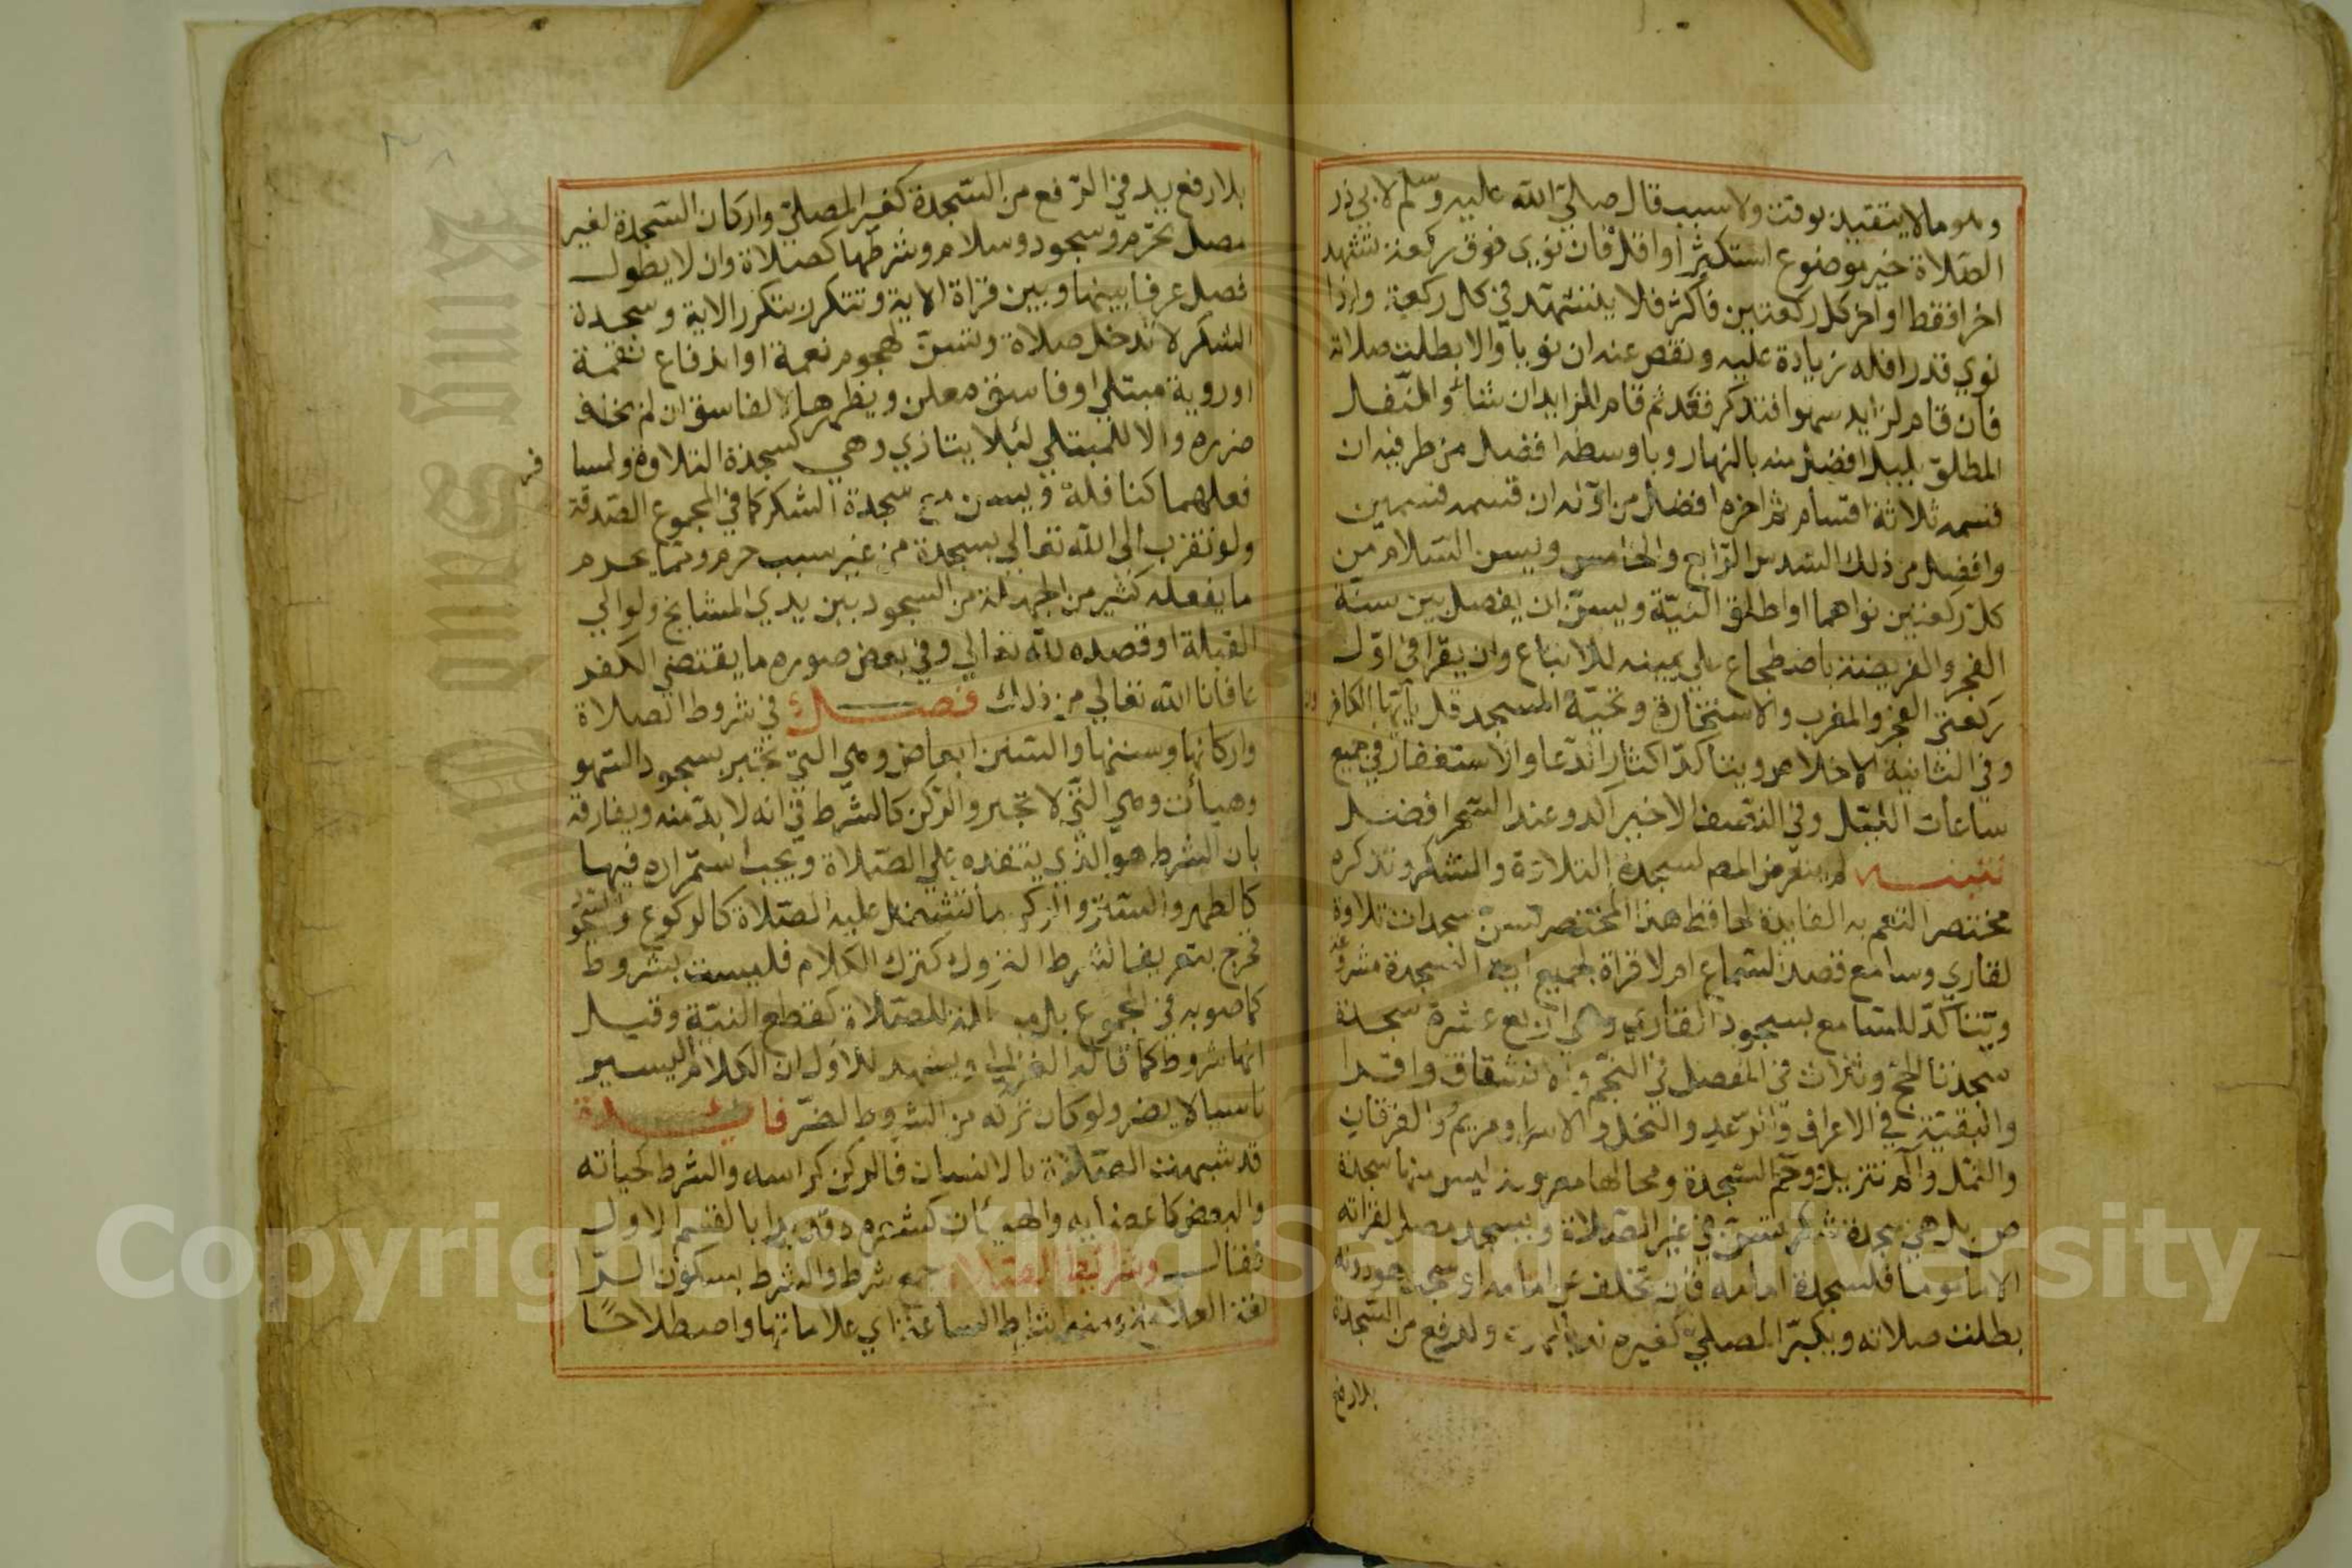 وهو ما لا يتقيد بوقت ولا سبب قال صلي الله عليه وسلم لابي ذر
الصلاة خير موضوع استكثر او اقل فان نوي فوق ركعة تشهد
اخرا فقط او اخر كل ركعتين فاكثر فلا يتشهد في كل ركعة واذا
نوي قدرا فله زيادة عليه ونقص عنه ان نويا والا بطلت صلاته
فان قام لزايد سهوا فتذكر قعد ثم قام للزايد ان شاء والنفل
المطلق بليل افضل منه بالنهار وباوسطه افضل من طرفيه ان
قسمه ثلاثة اقسام ثم اخره افضل من اوله ان قسمه قسمين
وافضل من ذلك السدس الرابع والخامس ويسن السلام من
كل ركعتين نواهما او اطلق النية ويسن ان يفصل بين سنة
الفجر والفريضة باضطجاع علي يمينه للاتباع وان يقرا في اول
ركعتي الفجر والمغرب والاستخارة وتحية المسجد قل يا ايها الكافر
ون
وفي الثانية الاخلاص ويتاكد اكثار الدعا والاستغفار في جميع
ساعات الليل وفي النصف الاخير آكد وعند السحر افضل
تنبيه لم يتعرض المص لسجدة التلاوة والشكر ونذكره
مختصرا لتعم به الفايدة لحافظ هذا المختصر تسن سجدات تلاوة
لقاري وسامع قصد السماع ام لا قراة لجميع اية السجدة مشروعة
ويتاكد للسامع بسجود القاري وهي اربع عشرة سجدة
سجدتا الحج وثلاث في المفصل في النجم والانشقاق واقرا
والبقية في الاعراف والرعد والنحل والاسرا ومريم والفرقان
والنمل والم تنزيل وحم السجدة ومحالها معروفة ليس منها سجدة
ص بل هي سجدة شكر تسن في غير الصلاة ويسجد مصل لقراته
الا ماموما فلسجدة امامه فان تخلف عن امامه او سجد هو دونه
بطلت صلاته ويكبر المصلي كغيره ندبا للهوي وللرفع من السجدة
بلا رفع
بلا رفع يد في الرفع من السجدة كغير المصلي واركان السجدة لغير
مصل تحرم وسجود وسلام وشرطها كصلاة وان لا يطول
فصل عرفا بينها وبين قراة الاية وتتكرر بتكرر الاية وسجدة
الشكر لا تدخل صلاة وتسن لهجوم نعمة او اندفاع نقمة
او روية مبتلي او فاسق معلن ويظهرها للفاسق ان لم يخف
ضرره والا للمبتلي لئلا يتاذي وهي كسجدة التلاوة ولمسا
فر
فعلهما كنافلة ويسن مع سجدة الشكر كما في المجموع الصدقة
ولو تقرب الي الله تعالي بسجدة من غير سبب حرم ومما يحرم
ما يفعله كثير من الجهلة من السجود بين يدي المشايخ ولو الي
القبلة او قصده لله تعالي وفي بعض صوره ما يقتضي الكفر
عافانا الله تعالي من ذلك فصل في شروط الصلاة
واركانها وسننها والسنن ابعاض وهي التي تجبر بسجود السهو
وهيأت وهي التي لا تجبر والركن كالشرط في انه لا بد منه ويفارقه
بان الشرط هو الذي يتقدم علي الصلاة ويجب استمراره فيها
كالطهر والستر والركن ما تشتمل عليه الصلاة كالركوع والسجود
فخرج بتعريف الشرط التروك كترك الكلام فليست بشروط
كما صوبه في المجموع بل مبطلة للصلاة كقطع النية وقيل
انها شروط كما قاله الغزالي ويشهد للاول ان الكلام اليسير
ناسيا لا يضر ولو كان تركه من الشروط لضر فايدة
قد شبهت الصلاة بالانسان فالركن كراسه والشرط كحياته
والبعض كاعضايه والهيئات كشعره وقد بدا بالقسم الاول
فقال وشرايط الصلاة جمع شرط والشرط بسكون الرا
لغة العلامة ومنه اشراط الساعة اي علاماتها واصطلاحا
Copyright © King Saud University